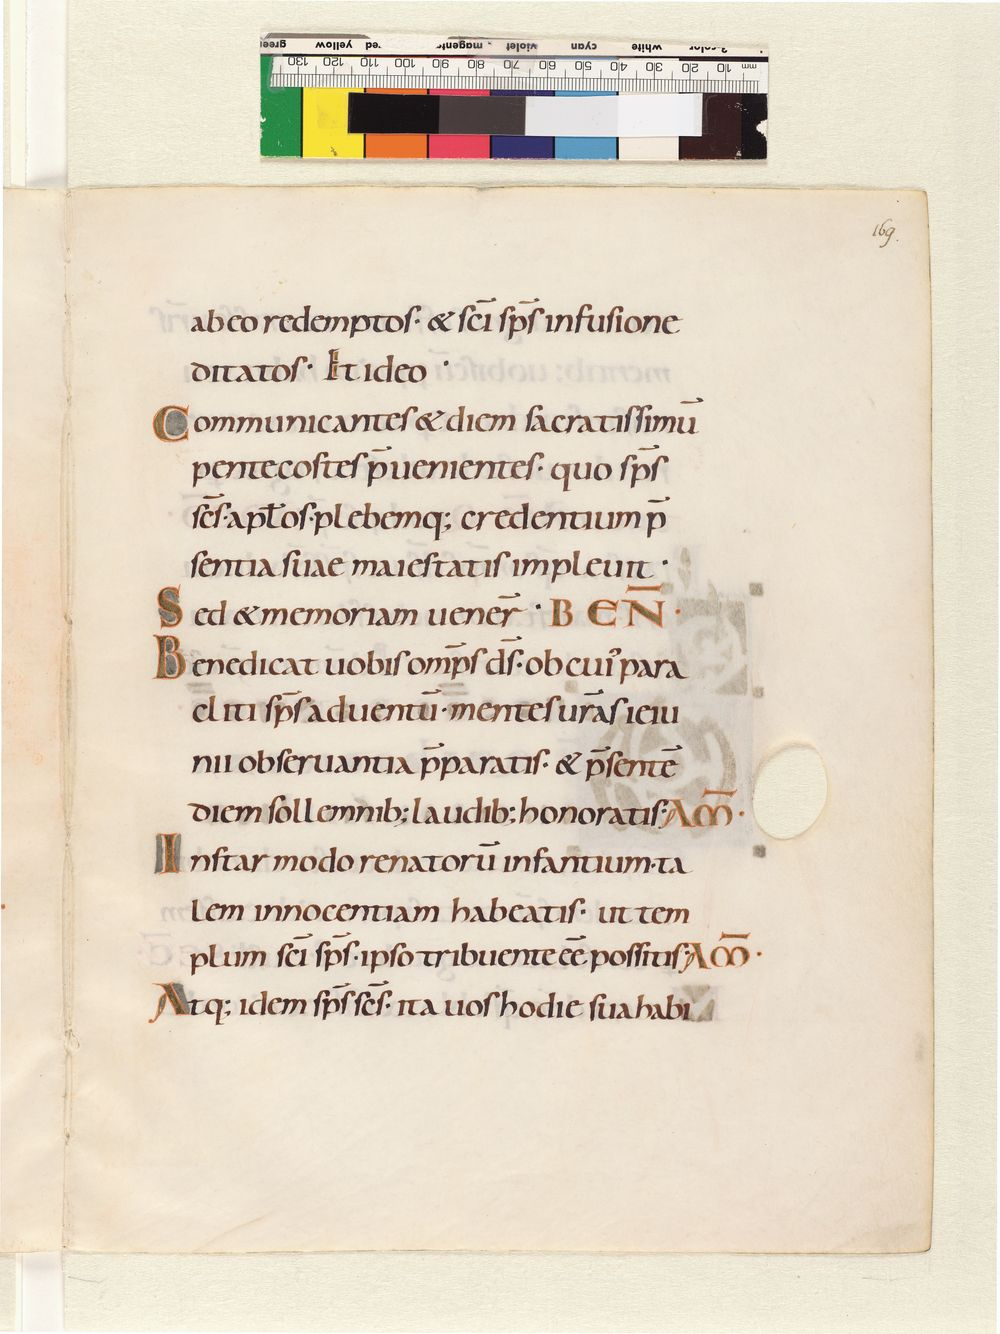 green yellow red magenta violet cyan white 3-color
130 120 110 100 90 80 70 60 50 40 30 20 10 mm
169.
ab eo redemptos· & sc̄i sp̄s infusione
ditatos· Et ideo ·
Communicantes & diem sacratissimū
pentecostes p̄uenientes· quo sp̄s
sc̄s· apłos· plebemq; credentium p̄
sentia suae maiestatis impleuit ·
Sed & memoriam uener̄ · BEN̄ ·
Benedicat uobis omp̄s d̄s· ob cui' para
cliti sp̄s aduentū· mentes ur̄as ieiu
nii obseruantia p̄paratis· & p̄sentē
diem sollemnib; laudib; honoratis; AM̄ ·
Instar modo renatorū infantium· ta
lem innocentiam habeatis· ut tem
plum sc̄i sp̄s· ipso tribuente eē possitis; AM̄ ·
Atq; idem sp̄s sc̄s· ita uos hodie sua habi